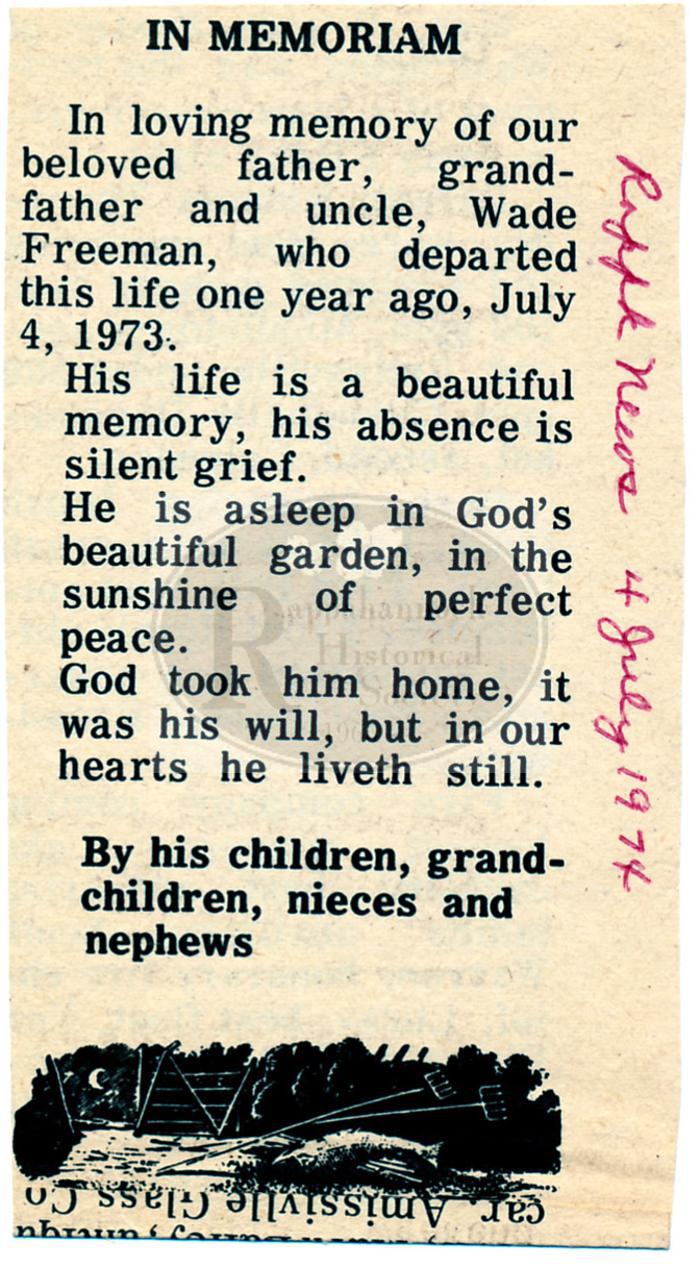 IN MEMORIAM
In loving memory of our
beloved father, grand-
father and uncle, Wade
Freeman, who departed
this life one year ago, July
4, 1973.
His life is a beautiful
memory, his absence is
silent grief.
He is asleep in God's
beautiful garden, in the
sunshine of perfect
peace.
God took him home, it
was his will, but in our
hearts he liveth still.
By his children, grand-
children, nieces and
nephews
Rappk News 4 July 1974
R
Rappahannock
Historical
Society
car. Amissivlle Glass Co